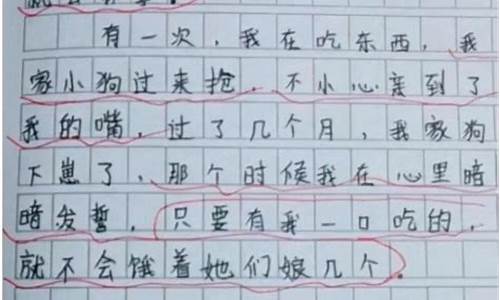 有一次，我在吃东西，我
家小狗过来抢，不小心亲到了
我的嘴，过了几个月，我家狗
下崽了，那个时候我在心里暗
暗发誓，只要有我一口吃的，
就不会饿着她们娘几个。